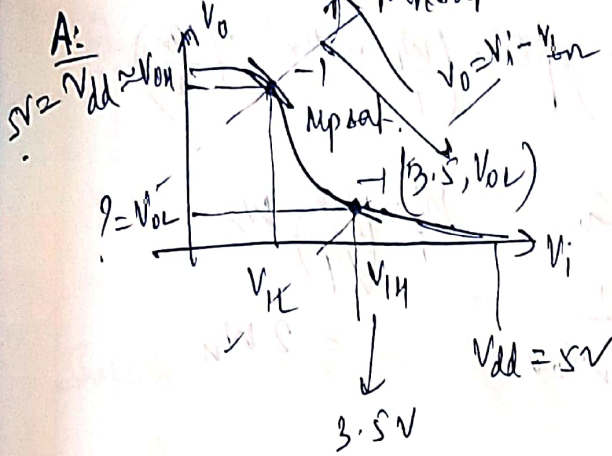 A:
V₀
5V = Vdd ≈ VOH
-1
V₀ = Vi - Vtn
Mpsat.
-1 (3.5, VOL)
? = VOL
Vi
VIL
VIH
Vdd = 5V
3.5V